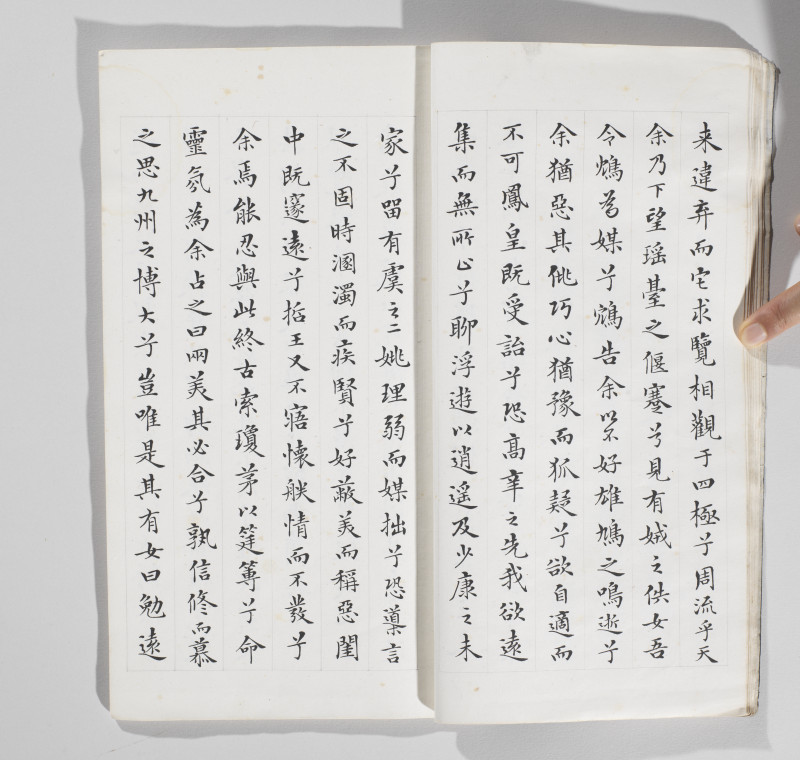 来違弃而它求覽相觀于四極兮周流乎天
余乃下望瑶臺之偃蹇兮見有娀之佚女吾
令鴆為媒兮鴆告余以不好雄鳩之鳴逝兮
余猶惡其佻巧心猶豫而狐疑兮欲自適而
不可鳳皇既受詒兮恐高辛之先我欲遠
集而無所止兮聊浮遊以逍遥及少康之未
家兮留有虞之二姚理弱而媒拙兮恐導言
之不固時溷濁而疾賢兮好蔽美而稱惡閨
中既邃遠兮哲王又不寤懷朕情而不發兮
余焉能忍與此終古索瓊茅以筳篿兮命
靈氛為余占之曰兩美其必合兮孰信修而慕
之思九州之博大兮豈唯是其有女曰勉遠